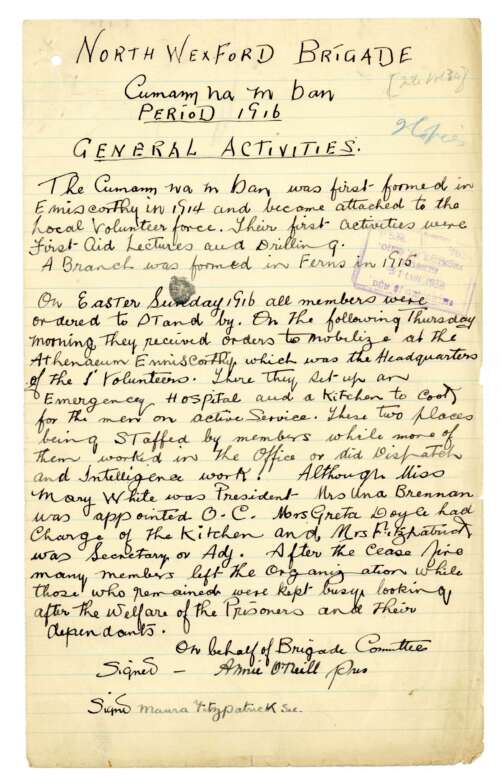 North Wexford Brigade
Cumann na m ban
Period 1916
General Activities.
2 Copies
The Cumann na m ban was first formed in
Enniscorthy in 1914 and became attached to the
Local Volunteer force. Their first activities were
First Aid Lectures and Drilling.
A Branch was formed in Ferns in 1915
On Easter Sunday 1916 all members were
ordered to Stand by. On the following Thursday
morning they received orders to mobilize at the
Athenaeum Enniscorthy which was the Headquarters
of the I Volunteers. There they set up an
Emergency Hospital and a Kitchen to Cook
for the men on active Service. These two places
being Staffed by members while more of
them worked in the Office or did Dispatch
and Intelligence work. Although Miss
Mary White was President Mrs Una Brennan
was appointed O.C. Mrs Greta Doyle had
Charge of the Kitchen and Mrs Fitzpatrick
was Secretary or Adj. After the Cease fire
many members left the Organization while
those who remained were kept busy looking
after the Welfare of the Prisoners and their
dependants.
On behalf of Brigade Committee
Signed - Annie O'Neill Pres
Signed Maura Fitzpatrick Sec.